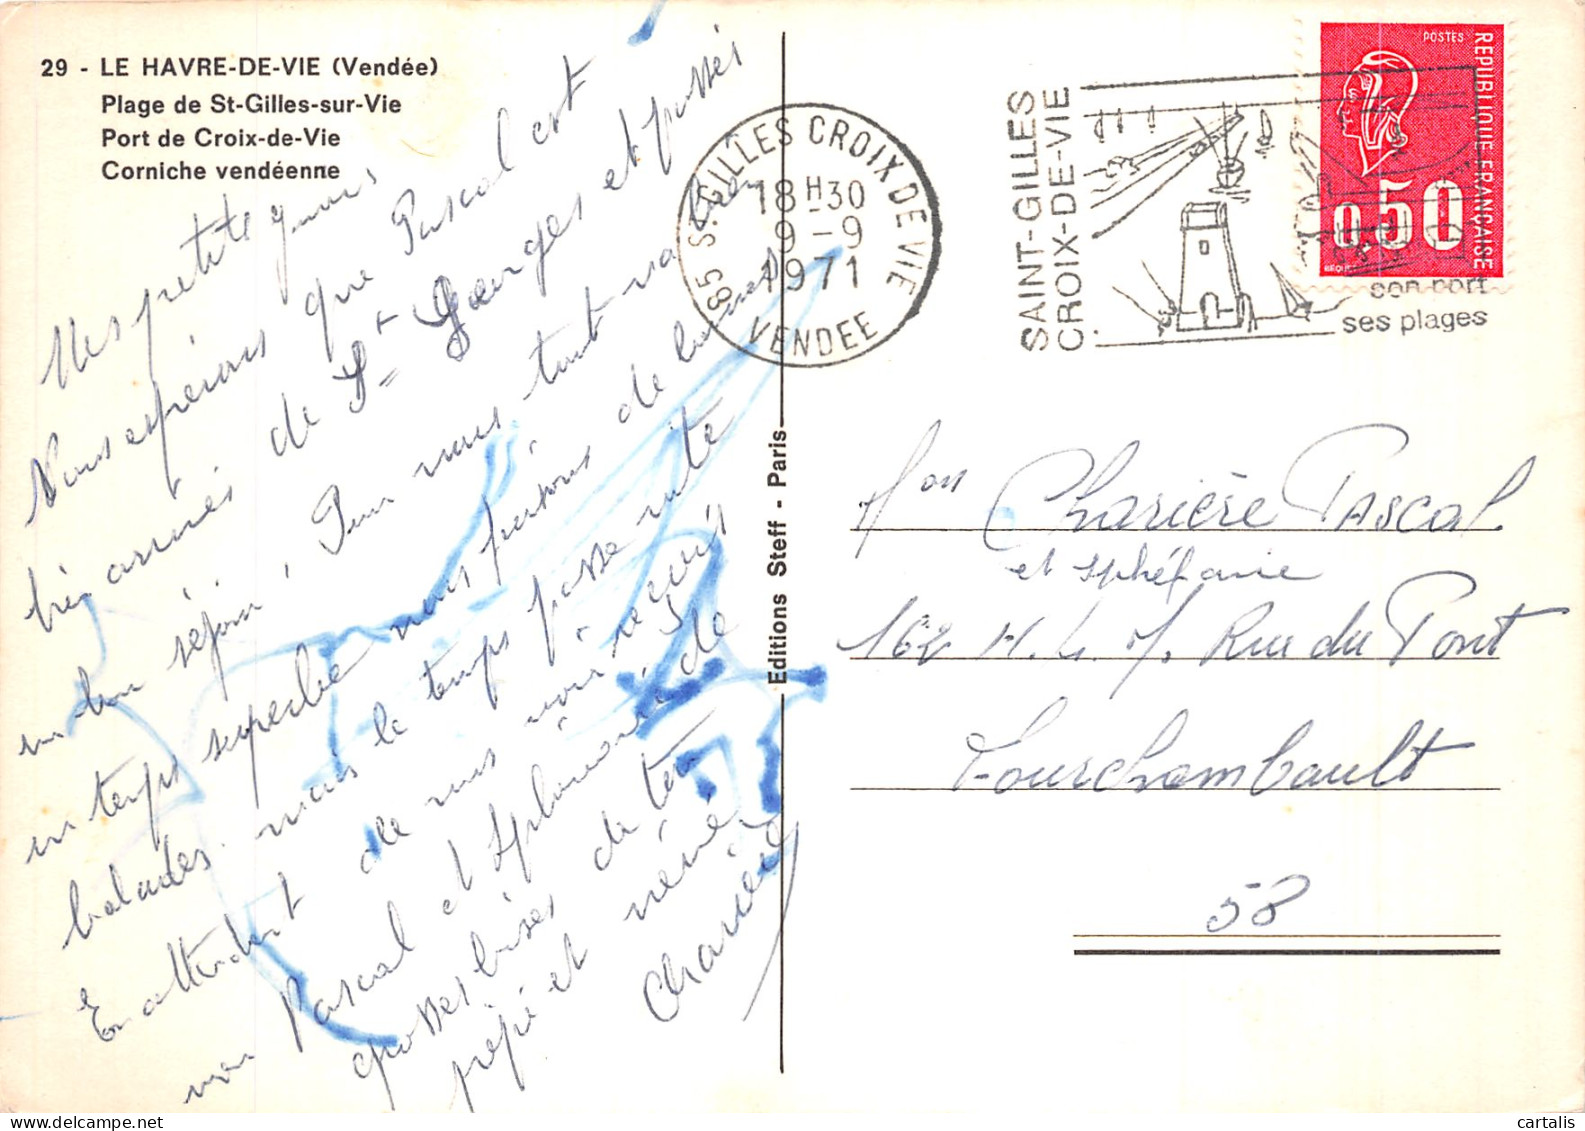 29 - LE HAVRE-DE-VIE (Vendée)
Plage de St-Gilles-sur-Vie
Port de Croix-de-Vie
Corniche vendéenne
Mes petits
Nous espérons que Pascal est
de St Georges et passés
un bon séjour, Pour nous tout va bien
un temps superbe nous faisons de bonnes
balades. mais le temps passe vite
En attendant de vous voir reçois
mon Pascal et Sphanie de
grosses bises de ton
pépé et mémé
Charière
Editions Steff - Paris
85 ST GILLES CROIX DE VIE
18H30
9-9
1971
VENDEE
SAINT-GILLES
CROIX-DE-VIE
son port
ses plages
POSTES
REPUBLIQUE FRANÇAISE
0,50
Mon Charière Pascal
et Sphéfanie
162 H.L.M. Rue du Pont
Fourchambault
58
cartalis